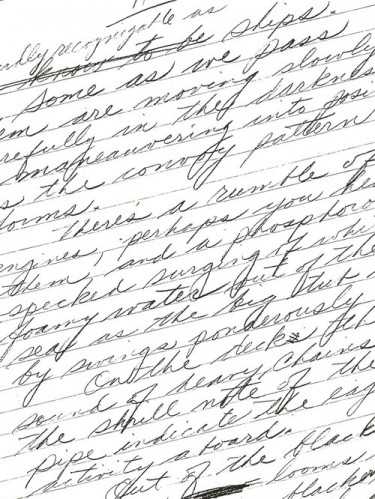 recognizable as
know to be ships.
Some as we pass
are moving slowly
in the darkness
maneauvering into
the convoy pattern
forms.
There's a rumble of
engines, perhaps you
them, and a
specked surging of
foamy water out of the
sea as the big tub
by swings ponderously
On the decks the
sound of heavy chains
the shrill note of the
pipe indicate the
activity aboard.
Out of the black
looms
blacker